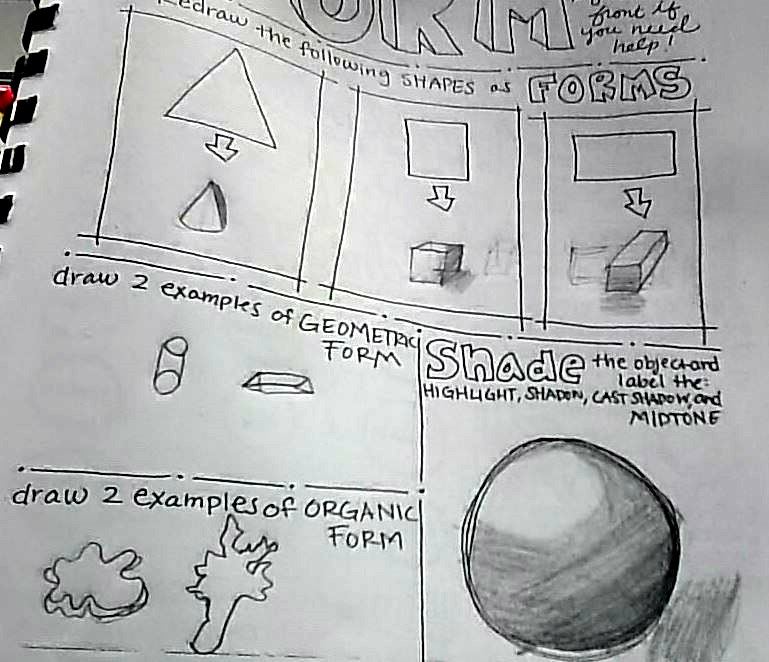 ORM
front if
you need
help!
Redraw the following SHAPES as FORMS
draw 2 examples of GEOMETRIC
FORM
Shade the object and
label the:
HIGHLIGHT, SHADOW, CAST SHADOW, and
MIDTONE
draw 2 examples of ORGANIC
FORM